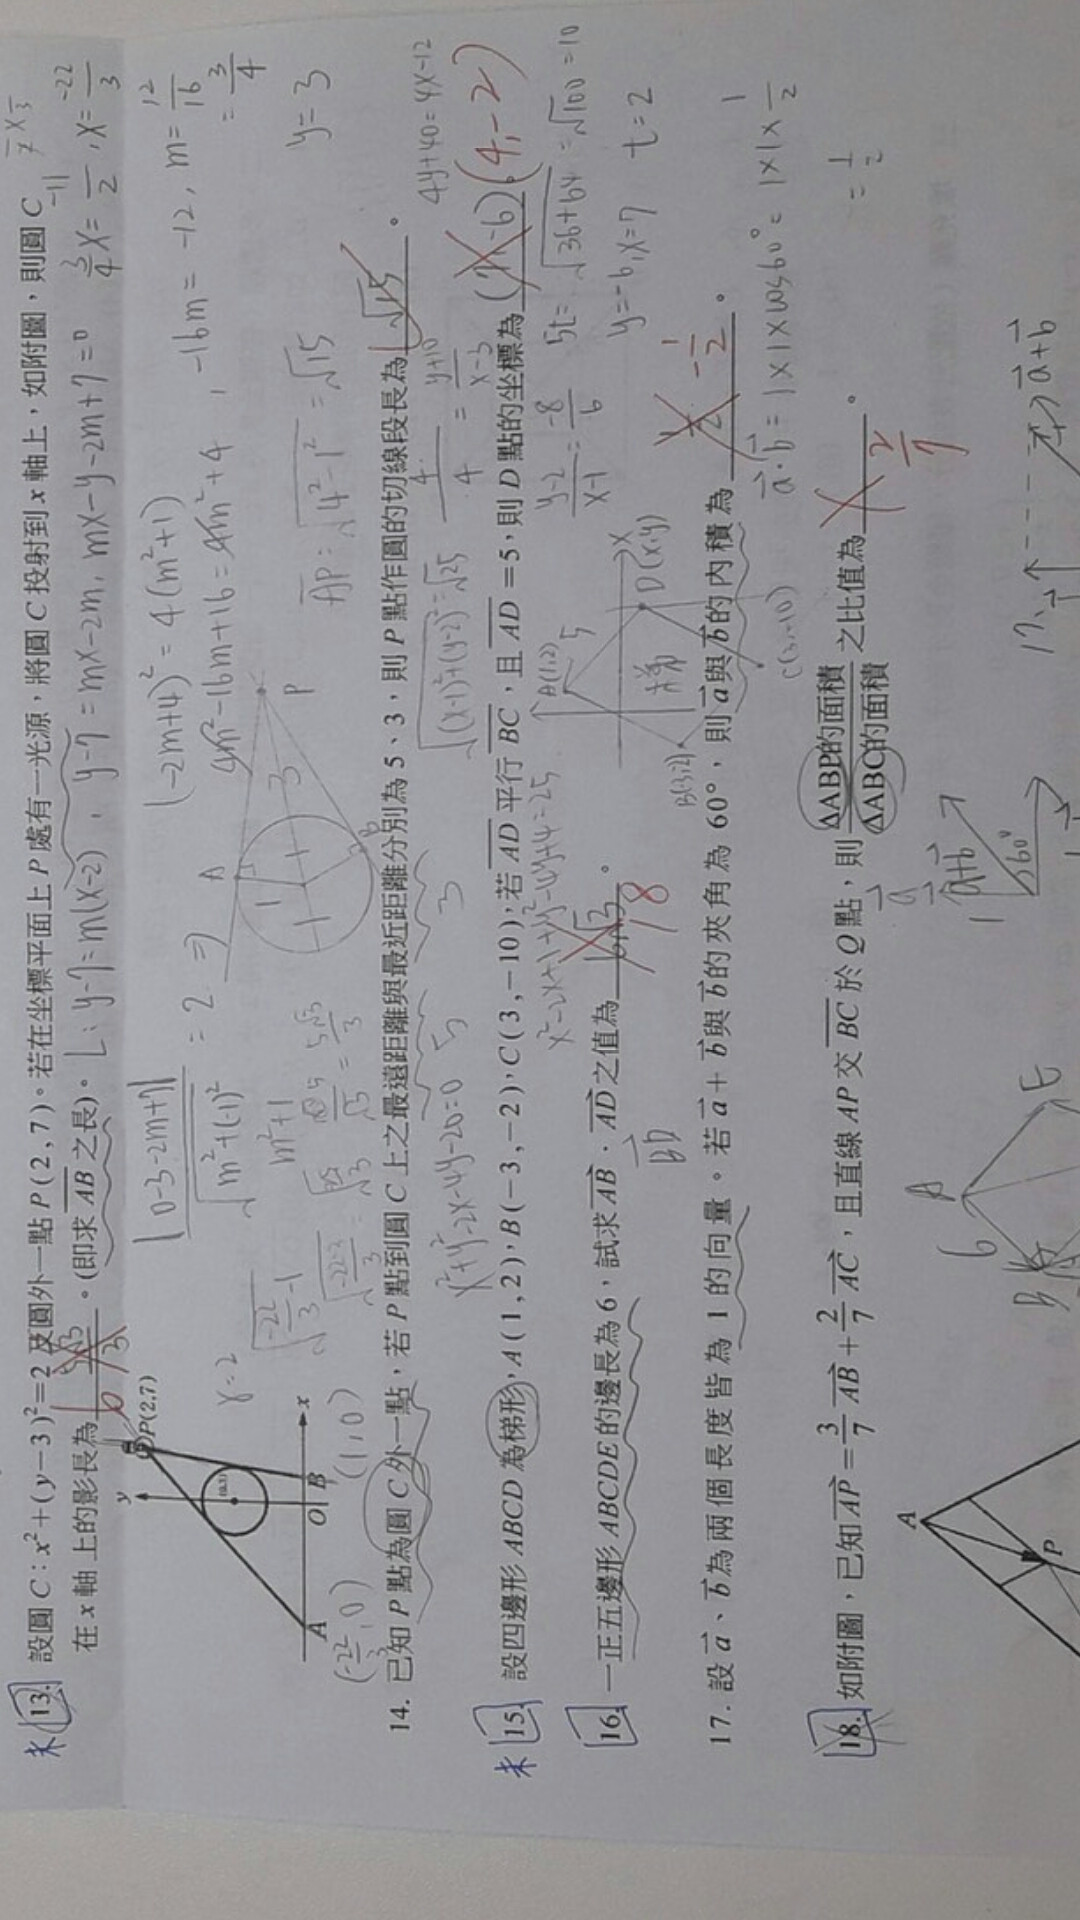 13. 設圓 C：x²+(y−3)²=2 及圓外一點 P(2,7)。若在坐標平面上 P 處有一光源，將圓 C 投射到 x 軸上，如附圖，則圓 C
在 x 軸上的影長為 6。(即求 AB 之長)。 L: y-7=m(x-2), y-7=mx-2m, mx-y-2m+7=0
3/4 X = -11/2, X = -22/3
|0-3-2m+7| / √(m²+(-1)²) = 2 ⇒ (-2m+4)² = 4(m²+1)
4m²-16m+16=4m²+4, -16m=-12, m=12/16
=3/4
y
P(2,7)
(0,3)
A O B x
(-22/3, 0) (1,0)
x=2
A
1 1 3
P
B
AP=√(4²-1²)=√15
y=3
14. 已知 P 點為圓 C 外一點，若 P 點到圓 C 上之最遠距離與最近距離分別為 5、3，則 P 點作圓的切線段長為 √15。
5 3
x²+y²-2x-4y-20=0
√((x-1)²+(y-2)²)=√25
4y+40=4x-12
15. 設四邊形 ABCD 為梯形，A(1,2)，B(−3,−2)，C(3,−10)，若 AD 平行 BC，且 AD=5，則 D 點的坐標為 (7,-6)。(4,-2)
x²-2x+1+y²-4y+4=25
y-2/x-1 = -8/6
5t=√(36+64)=√100=10
y=-6, x=7 t=2
A(1,2)
5
X
D(x,y)
梯形
B(-3,-2)
C(3,-10)
16. 一正五邊形 ABCDE 的邊長為 6，試求 AB · AD 之值為 18。
BD
17. 設 a、b 為兩個長度皆為 1 的向量。若 a+b 與 b 的夾角為 60°，則 a 與 b 的內積為 -1/2。
a·b=1×1×cos60°=1×1×1/2
=1/2
18. 如附圖，已知 AP=3/7 AB+2/7 AC，且直線 AP 交 BC 於 Q 點，則 ΔABP的面積/ΔABC的面積 之比值為 2/7。
A
P
A
6
B
E
a
a+b
1
60°
17.
a+b